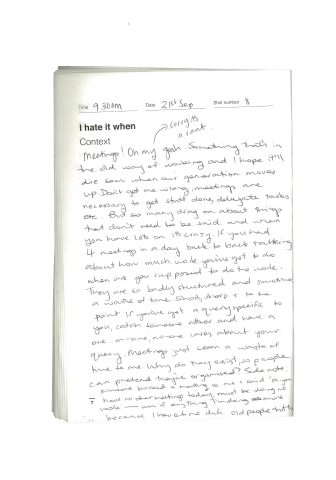 Time 9.30am Date 21st Sep Shat number 8
I hate it when
→ sorry its
a rant.
Context
Meetings! Oh my gosh. Something that's in
the old way of working and I hope it'll
die soon when our generation moves
up. Don't get me wrong, meetings are
necessary to get stuff done, delegate tasks
etc. But so many drag on about things
that don't need to be said and when
you have lots on its crazy. If you had
4 meetings in a day back to back talking
about how much work you've got to do
when are you supposed to do the work.
They are so badly structured and sometimes
a waste of time. Short, sharp + to the
point. If you've got a query specific to
you, catch someone after and have a
one-on-one, no-one cares about your
query. Meetings just seem a waste of
time to me. Why do they exist, so people
can pretend they're organised? Side note:
someone booked a meeting w me + said 'oh you
have no other meetings today, must be doing no
work — um if anything I'm doing more
because I have time duh. Old people tht th